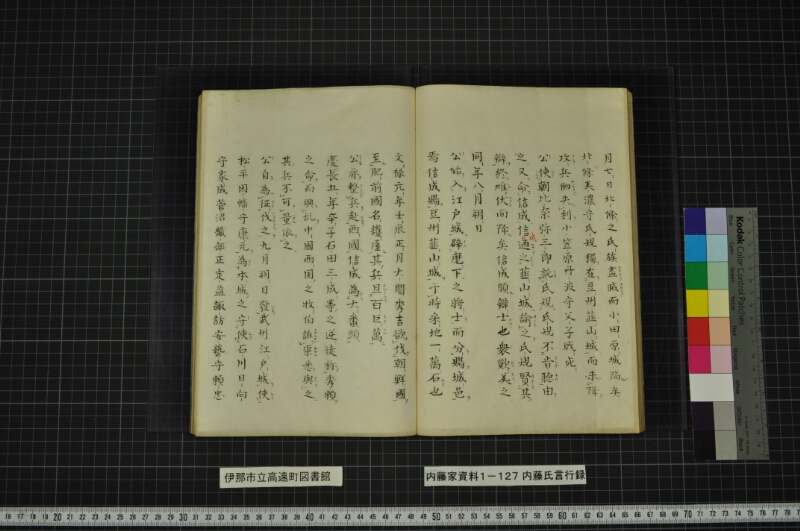 月七日北條之氏族盡滅而小田原城陥矣
北條美濃守氏規獨在豆州韮山城而未降
攻兵肥央利小笠原丹波守父子戦死
公使朝比奈弥三郎説氏規氏規不肯聴由
之又命信成信成過之韮山城諭之氏規賢其
辯終雌伏而降矣信成頗辯士也衆歎美之
同年八月朔日
公始入江戸城辟麾下之将士而分賜城邑
焉信成賜豆州韮山城于時采地一萬石也
文禄元年壬辰正月大閤秀吉欲伐朝鮮國
至肥前國名護屋其兵且百巨萬
公亦整兵赴西國信成為大番頭
慶長五年庚子石田三成等之逆徒称秀頼
之命而興於中國西国之牧伯悉與之
其兵不可量依之
公自為征伐之九月朔日發武州江戸城使
松平因幡守康元為本城之守使石川日向
守家成菅沼織部正定盈諏訪安藝守頼忠
伊那市立高遠町図書館
内藤家資料1－127 内藤氏言行録
Kodak Color Control Patches